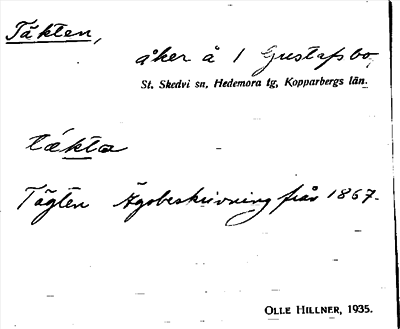 Täkten,
åker å 1 Gustafsbo,
St. Skedvi sn, Hedemora tg, Kopparbergs län.
täkta
Tägten Ägobeskrivning från 1867.
OLLE HILLNER, 1935.